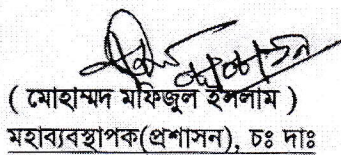 ( মোহাম্মদ মফিজুল ইসলাম )
মহাব্যবস্থাপক(প্রশাসন), চঃ দাঃ